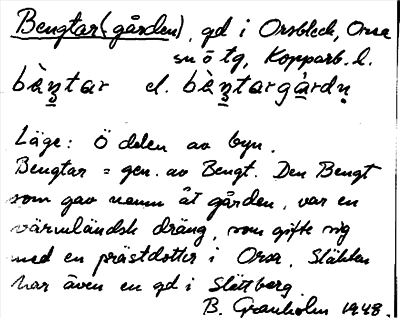 Bengtar (gården), gd i Orsbleck, Orsa
sn o tg, Kopparb. l.
bèn̥tar el. bèn̥targårdn̥
Läge: Ö delen av byn.
Bengtar = gen. av Bengt. Den Bengt
som gav namn åt gården, var en
värmländsk dräng, som gifte sig
med en prästdotter i Orsa. Släkten
har även en gd i Slättberg.
B. Granholm 1948.